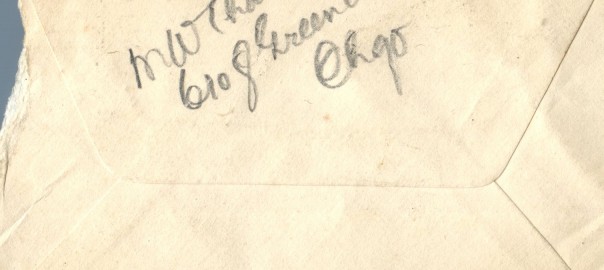 M W Tha
610 Green
Chgo